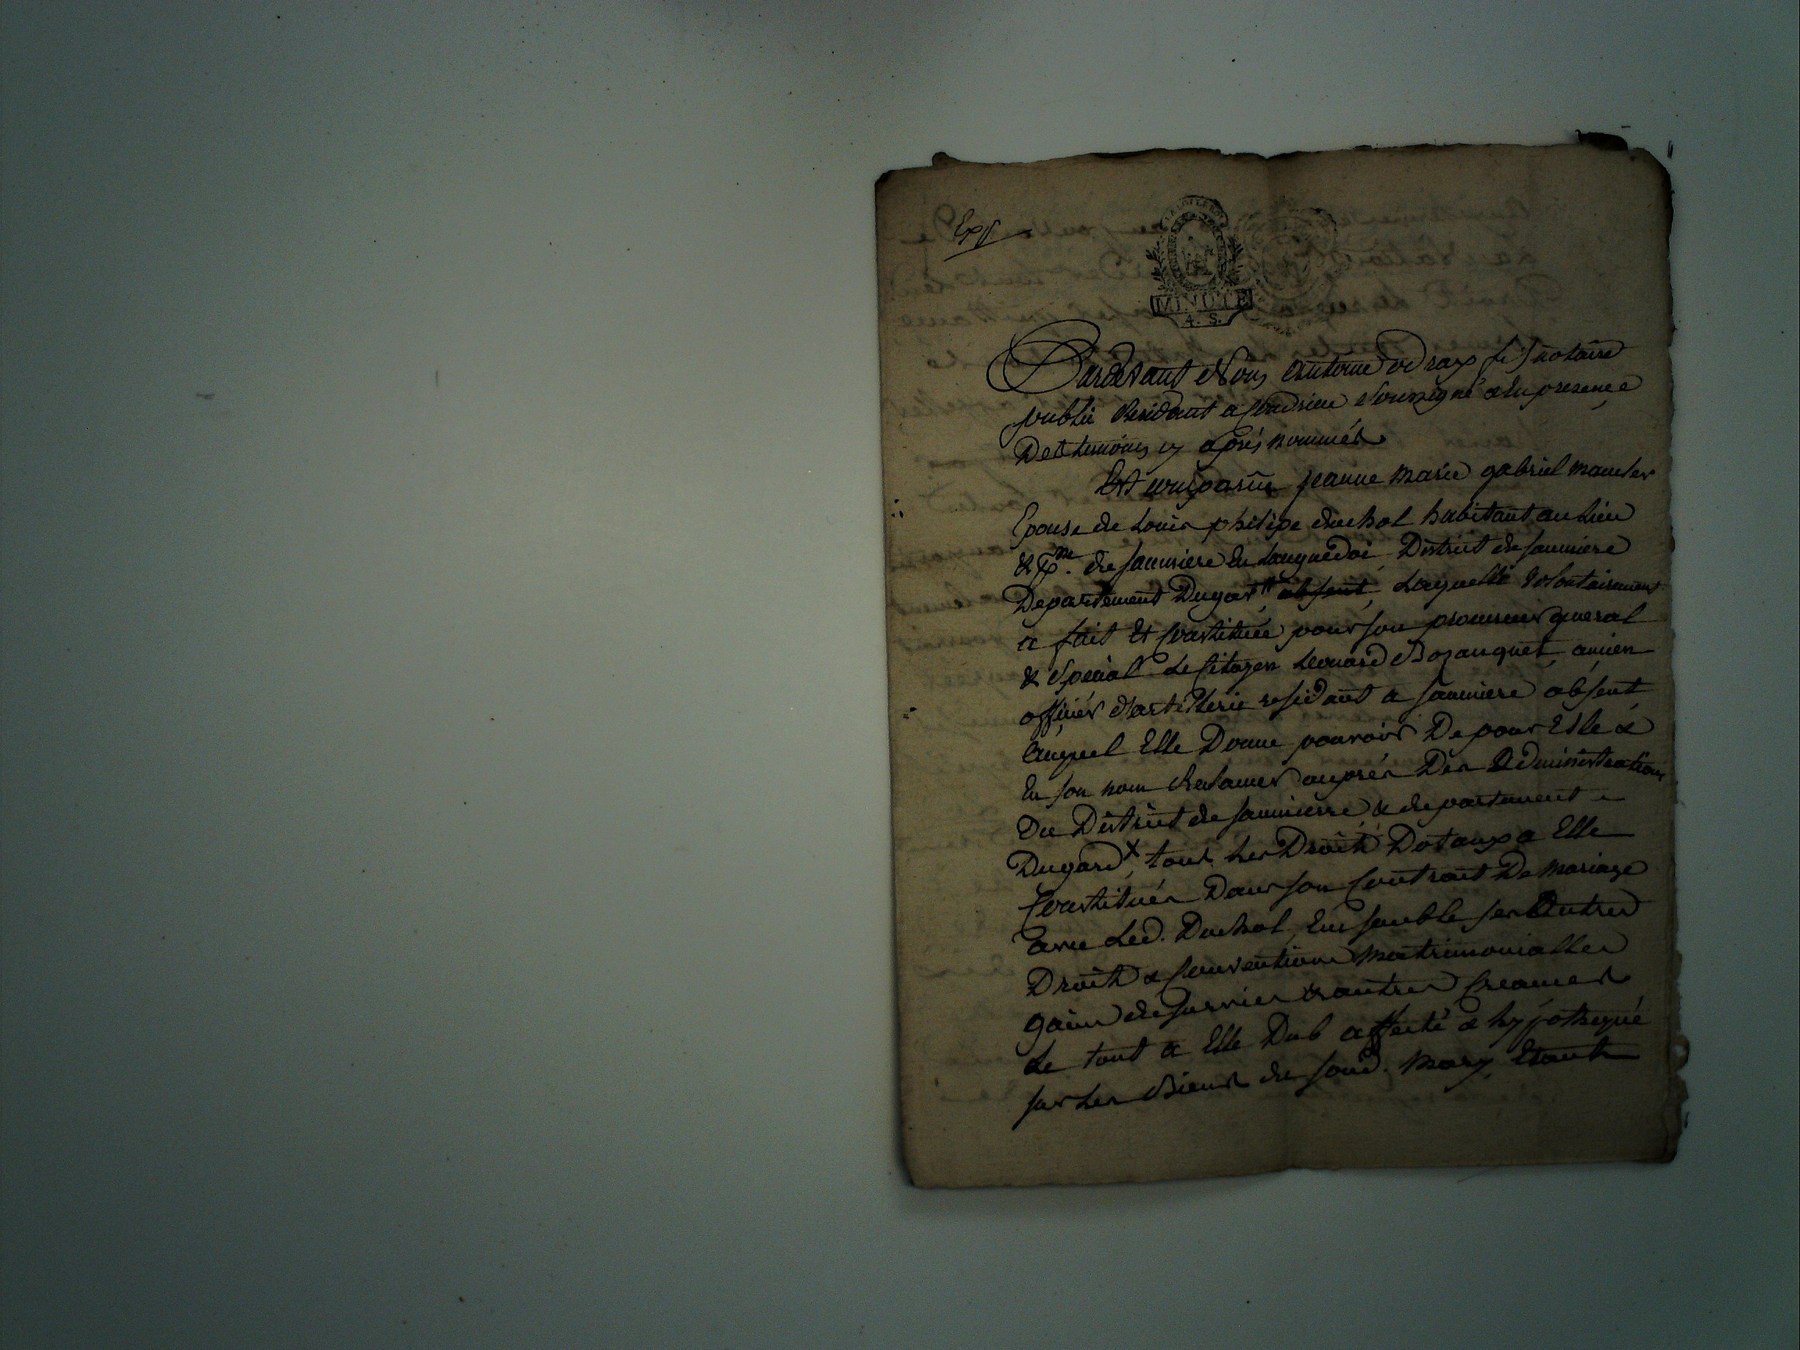 Exp
MINUTE
4. S.
Pardevant Nous Antoine fils notaire
public Residant a Condrieu soussigné & en presence
Des temoins cy après nommés
Est comparüe jeanne Marie gabriel
Epouse de Louis philipe Duchol habitant au Lieu
& de saumiere En Languedoc, District de saumiere
Departement Dugard absent, Laquelle volontairement
a fait Et Constitüée pour son procureur gneral
& special Le Citoyen Leonard Bozanquet, ancien
officier d'artillerie residant a saumiere absent
auquel Elle Donne pouvoir De pour Elle &
En son nom Reclamer auprés Des Administrations
Du District de saumierre & departement
Dugard X, tous les Droits Dotaux a Elle
Constitués Dans son Contrat De Mariage
avec Led. Duchol, Ensemble ses Autres
Droits & Conventions Matrimonialles
gains de survies & autres Creances
Le tout a Elle Dub affecté & hypothequé
sur Les Biens de sond. Mary, Etant